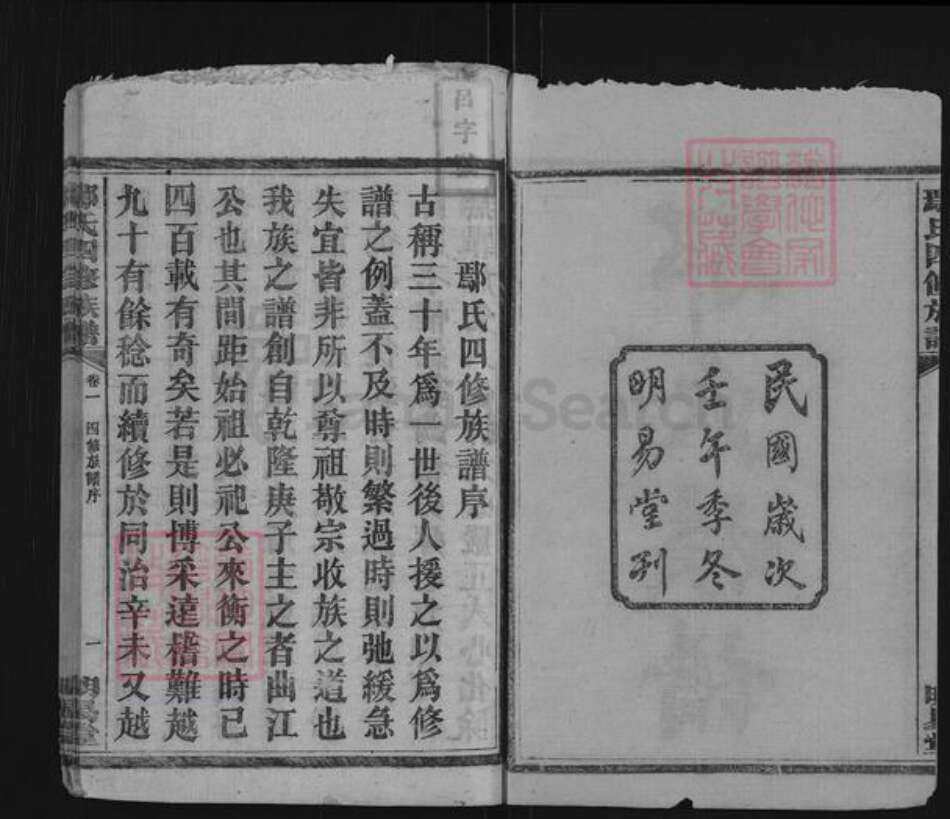 民國歲次
壬午季冬
明易堂刊
呂字
鄢氏四修族譜序
古稱三十年爲一世後人援之以爲修
譜之例蓋不及時則繁過時則弛緩急
失宜皆非所以尊祖敬宗收族之道也
我族之譜創自乾隆庚子主之者曲江
公也其間距始祖必祀公來衡之時已
四百載有奇矣若是則博采遠稽難越
九十有餘稔而續修於同治辛未又越
鄢氏四修族譜
卷一
四修族譜序
一
明易堂